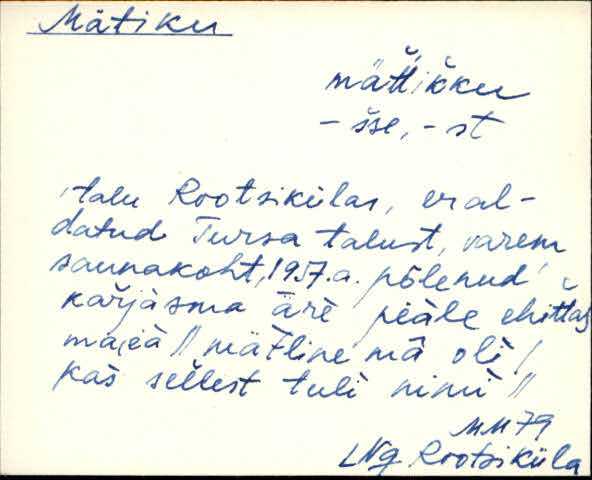 Mätiku
mättikku
- sse, - st
talu Rootsikülas, eral-
datud Tursa talust, varem
saunakoht, 1957.a. põlenud
karjasma äre peäle ehittas
majeä // mätline mā oli /
kas sellest tuli nimi //
MM 79
LNg Rootsiküla